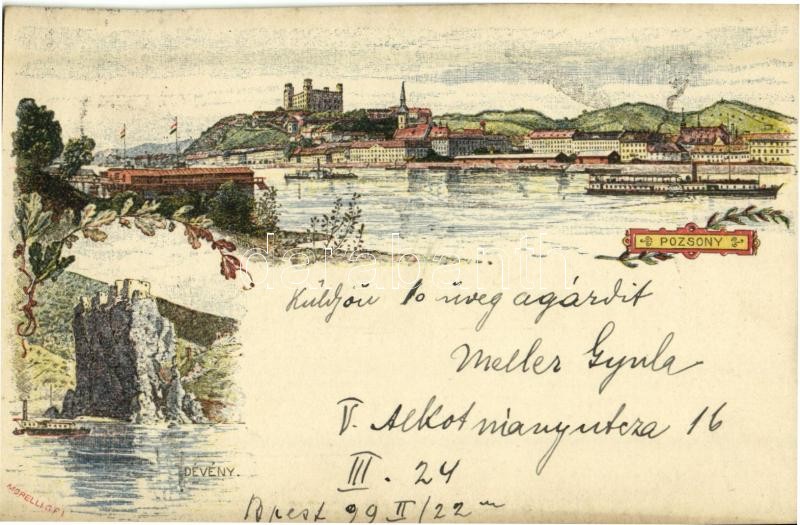 POZSONY
Küldjön 10 üveg agárdit
Meller Gyula
V. Alkotmányutcza 16
III. 24
Bpest 99 II/22
DÉVÉNY.
MORELLI G.F.